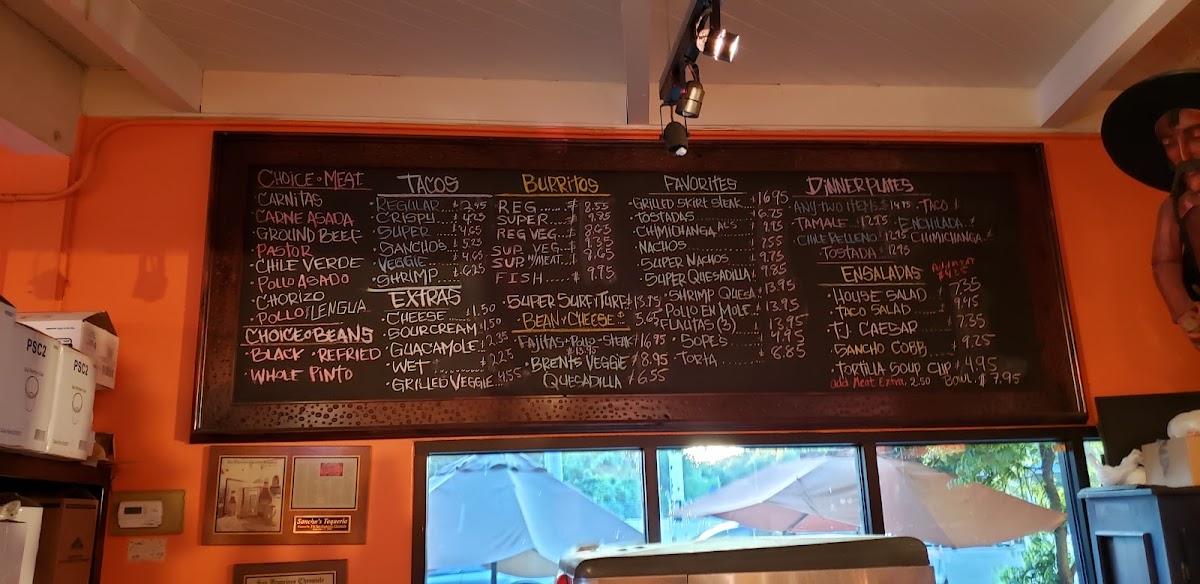 CHOICE • MEAT
• CARNITAS
• CARNE ASADA
• GROUND BEEF
• PASTOR
• CHILE VERDE
• POLLO ASADO
• CHORIZO
• POLLO • LENGUA
CHOICE • BEANS
• BLACK • REFRIED
• WHOLE PINTO
TACOS
• REGULAR $2.95
• CRISPY 4.25
• SUPER 4.65
• SANCHOS 5.25
VEGGIE 4.65
• SHRIMP 6.25
EXTRAS
• CHEESE 1.50
• SOURCREAM 1.50
• GUACAMOLE 2.35
• WET 2.25
• GRILLED VEGGIE 4.55
BURRITOS
REG $ 8.55
SUPER 9.75
REG VEG 8.65
SUP VEG 9.35
SUP n/MEAT 9.65
FISH $ 9.95
• SUPER SURF/TURF 13.75
• BEAN Y CHEESE $ 5.65
FAJITAS • POLLO • STEAK 16.95
$13.95
BRENTS VEGGIE 8.95
QUESADILLA 6.55
FAVORITES
• GRILLED SKIRT STEAK 16.95
• TOSTADAS 6.75
• CHIMICHANGA ACS 9.95
• NACHOS 7.55
• SUPER NACHOS 9.75
• SUPER QUESADILLA 9.85
• SHRIMP QUESA 13.95
• POLLO EN MOLE 13.95
FLAUTAS (3) 13.95
• SOPES 4.95
• TORTA 8.85
DINNER PLATES
ANY TWO ITEMS $14.95 • TACO
TAMALE 12.95 • ENCHILADA
• CHILE RELLENO 12.95 CHIMICHANGA
• TOSTADA 12.95
ENSALADAS
• HOUSE SALAD 7.35
TACO SALAD 9.45
• TJ CAESAR 7.35
• SANCHO COBB 9.25
• TORTILLA SOUP CUP $ 4.95
add Meat Extra, 2.50 BOWL $ 7.95
PSC2
PSC2
Sancho's Taqueria
San Francisco Chronicle